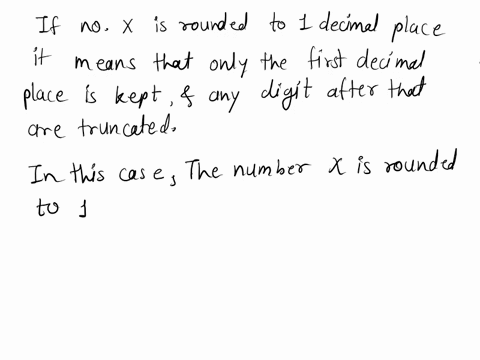 If no. X is rounded to 1 decimal place
it means that only the first decimal
place is kept, & any digit after that
are truncated.
In this case, The number X is rounded
to 1